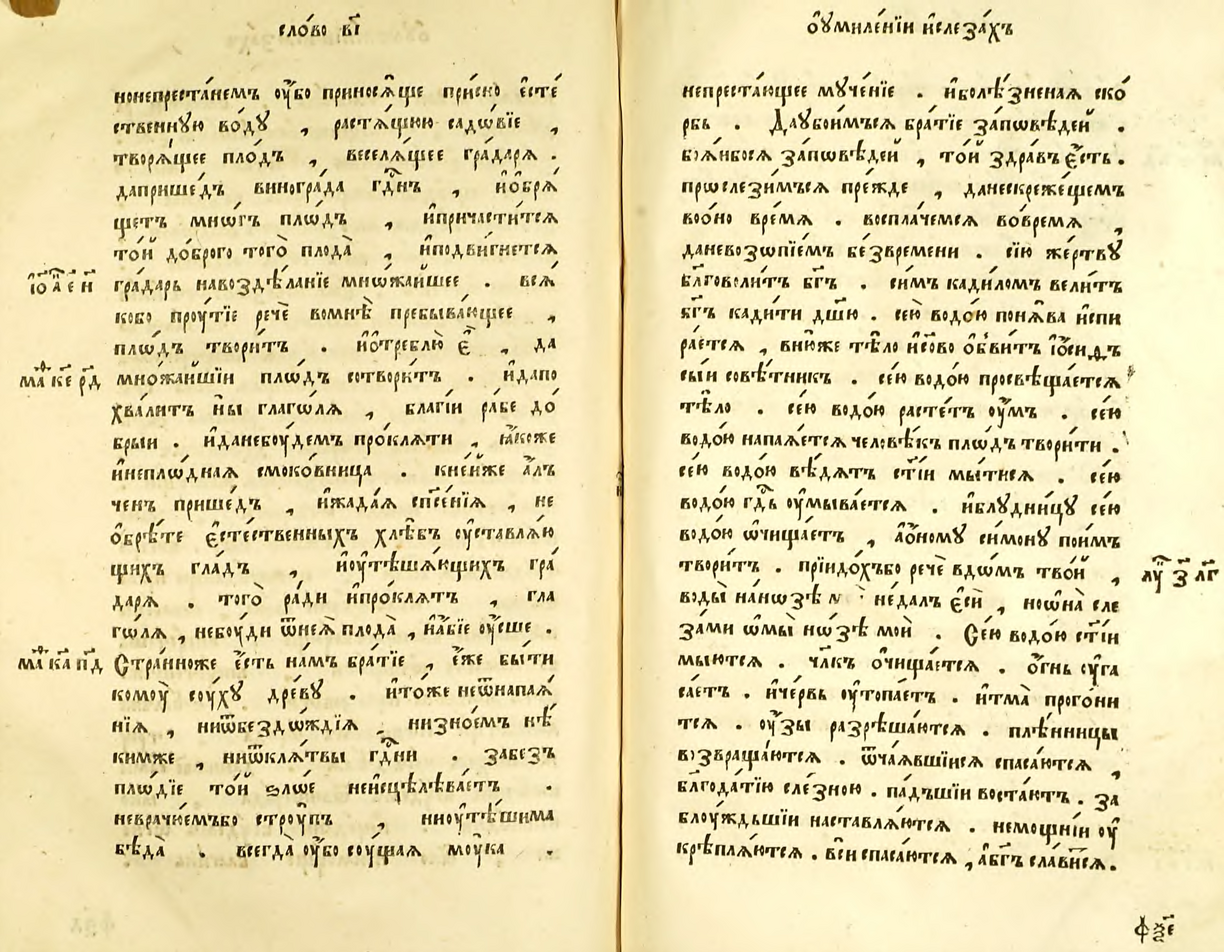 сло́во в҃і
нонепреста́немъ ᲂу҆́бо приносѧ́ще при́сно є҆сте́
ственнꙋю во́дꙋ , растѧ́щюю садѡ́вїе ,
творѧ́щее пло́дъ , веселѧ́щее гра́дарѧ .
даприше́дъ виногра́да гдⷭ҇нъ , и҆ѻ҆брѧ́
щетъ мнѡ́гъ плѡ́дъ , и҆причасти́тсѧ
то́й до́браго того̀ плода̀ , и҆подви́гнетсѧ
гра́дарь навоздѣ́ланїе мнѡ́жайшее . всѧ́
і҆ѡⷩ҇ а҃ е҃ и҃
кобо прꙋ́тїе речѐ вомнѣ̀ пребыва́ющее ,
плѡ́дъ твори́тъ . и҆ѻ҆треблю̀ є҆̀ , да
мно́жайшїи плѡ́дъ сотвори́тъ . и҆дапо
маⷴ҇ к҃е р҃д
хва́литъ ны̀ глаго́лѧ , благі́и ра́бе до́
брыи . и҆данебꙋ́демъ про́клѧти , ꙗ҆́коже
и҆непло́днаѧ смоко́вница . кне́йже а҆́лъ
ченъ прише́дъ , и҆жада́ѧ сп҃се́нїѧ , не
ѻ҆брѣ́те є҆сте́ственныхъ хлѣ́бъ ᲂу҆ставлѧ́ю
щихъ гла́дъ , и҆ᲂу҆тѣша́ющихъ гра́
дарѧ . того̀ ра́ди и҆про́клѧтъ , гла
го́лѧ , небꙋ́ди ѿнеѧ̀ плода̀ , и҆а҆́бїе ᲂу҆́сше .
Стра́нноже є҆́сть на́мъ бра́тїе , є҆́же бы́ти
маⷴ҇ к҃а п҃д
комꙋ̀ сꙋ́хꙋ дре́вꙋ . и҆то́же неѿнапаѧ́
нїѧ , ниѿбездо́ждїѧ , низно́емъ нѣ́
кимже , ниѿклѧ́твы гдⷭ҇ни . забезъ
пло́дїе то́й ѕлѡ́е неи҆сцѣлѣва́етъ .
неврачю́емъбо стрꙋ́пъ , ниᲂу҆тѣ́шима
бѣда̀ . всегда̀ ᲂу҆́бо сꙋ́щаѧ мꙋ́ка .
ѻ҆ᲂу҆миле́нїи и҆слеза́хъ
непреста́ющее мꙋче́нїе . и҆болѣ́зненаѧ ско́
рбь . Даᲂубои́мъсѧ бра́тїе за́повѣдей .
боѧ́ибосѧ за́повѣдей , то́й здра́въ є҆́сть .
прослези́мъсѧ пре́жде , данескреже́щемъ
воо́но вре́мѧ . воспла́чемсѧ во́времѧ ,
даневозопїе́мъ бе́звремени . сїю̀ же́ртвꙋ
бл҃говоли́тъ бг҃ъ . си́мъ кади́ломъ вели́тъ
бг҃ъ кади́ти дш҃ю . се́ю водо́ю понѧ́ва и҆спи
ра́етсѧ , вню́же тѣ́ло и҆сово ѻ҆бви́тъ і҆ѡ҆́сифъ
сы́и совѣ́тникъ . се́ю водо́ю просвѣща́етсѧ
тѣ́ло . се́ю водо́ю расте́тъ ᲂу҆́мъ . се́ю
водо́ю напаѧ́етсѧ человѣ́къ плѡ́дъ твори́ти .
се́ю водо́ю вѣ́дѧтъ ст҃і́и мы́тисѧ . се́ю
водо́ю гдⷭ҇ь ᲂу҆мыва́етсѧ . и҆блꙋдни́цꙋ се́ю
водо́ю ѡ҆чища́етъ , а҆ѻ҆номꙋ си́монꙋ пои́мъ
твори́тъ . прїидо́хъбо речѐ вдо́мъ тво́й ,
лꙋⷦ҇ з҃ л҃г
воды̀ на́нозѣ не́далъ є҆сѝ , ноѻ҆на̀ сле
за́ми ѡ҆мы̀ но́зѣ моѝ . Се́ю водо́ю ст҃і́и
мы́ютсѧ . чл҃къ ѡ҆чища́етсѧ . ѻ҆́гнь ᲂу҆га
са́етъ . и҆че́рвь ᲂу҆топа́етъ . и҆тма̀ прогони́
тсѧ . ᲂу҆́зы разрѣша́ютсѧ . плѣ́нницы
возвраща́ютсѧ . ѿча́ѧвшїисѧ спаса́ютсѧ ,
бл҃года́тїю сле́зною . па́дъшїи воста́ютъ . за
блꙋ́ждьшїи наставлѧ́ютсѧ . немо́щнїи ᲂу҆
крѣплѧ́ютсѧ . всѝ спаса́ютсѧ , а҆бг҃ъ сла́висѧ .
ф҃ѯе